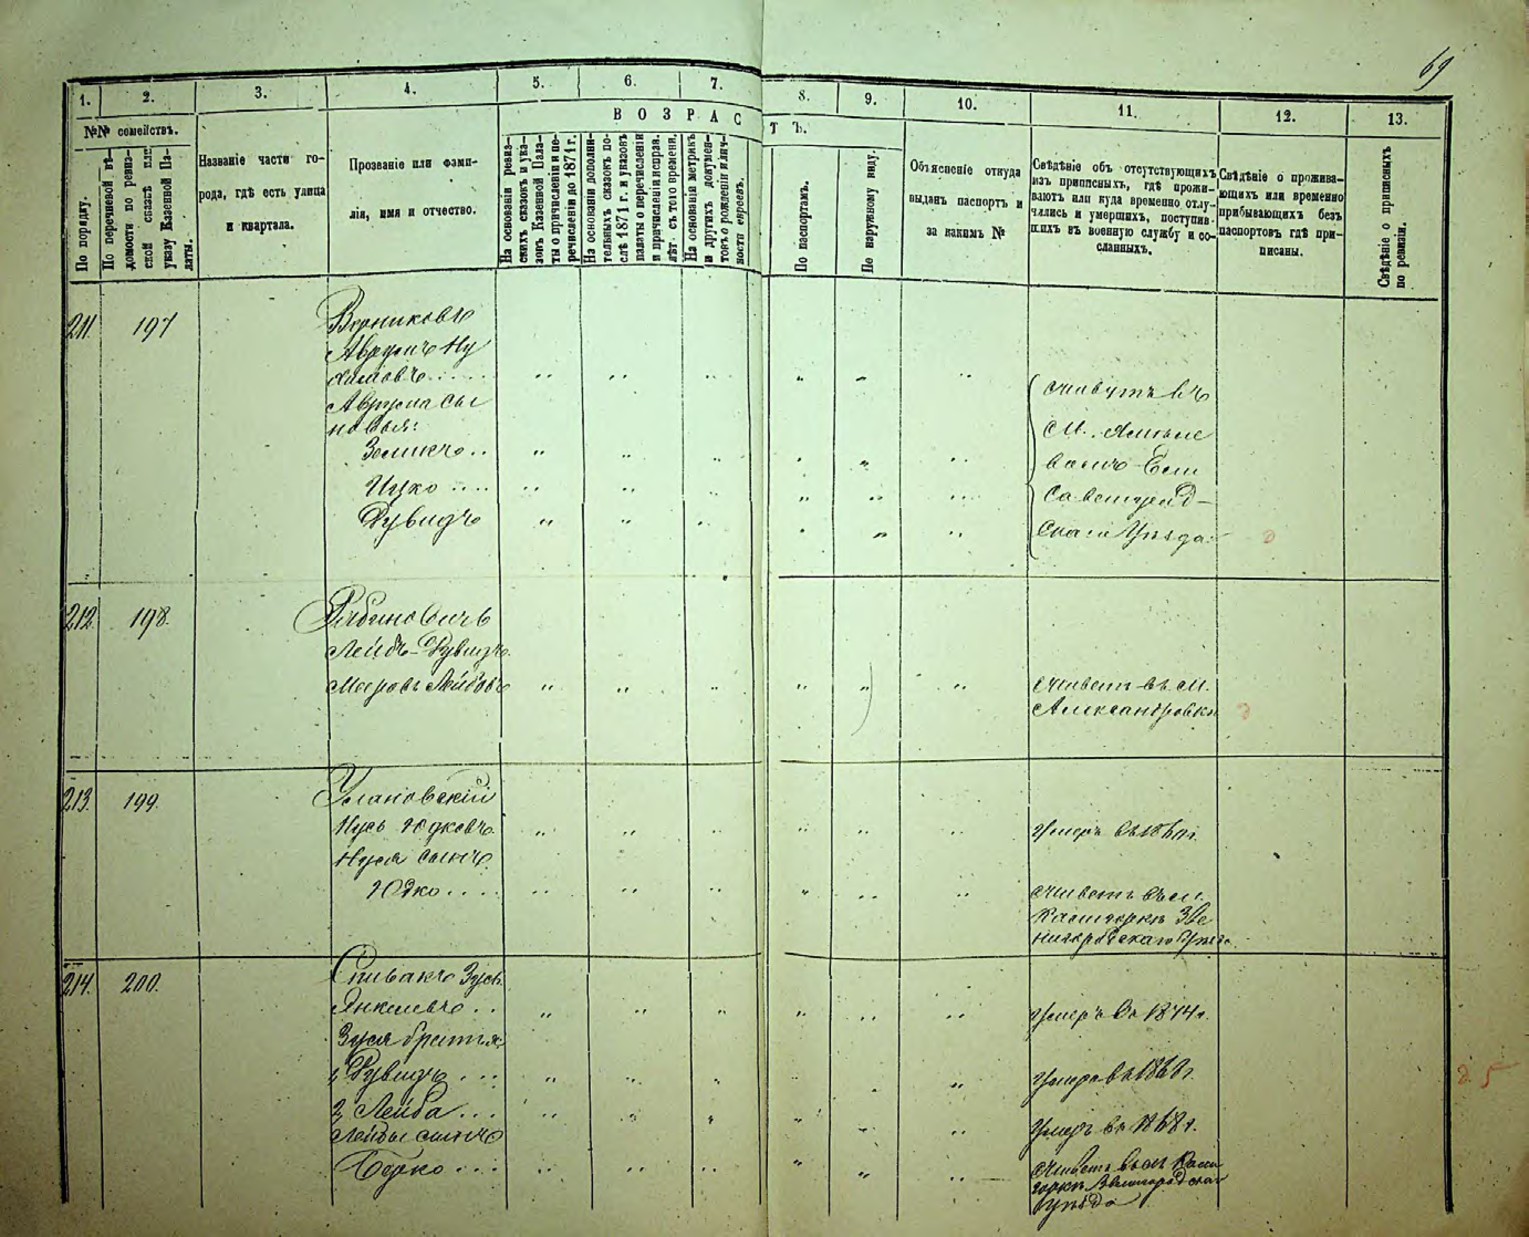 69
1. 2. 3. 4. 5. 6. 7. 8. 9. 10. 11. 12. 13.
№№ семействъ.
По порядку.
По перечневой вѣ-
домости по ревиз-
ской сказкѣ или
указу Казенной Па-
латы.
Названіе части го-
рода, гдѣ есть улица
и квартала.
Прозваніе или фами-
лія, имя и отчество.
ВОЗРАСТЪ.
На основаніи ревиз-
скихъ сказокъ и ука-
зовъ Казенной Пала-
ты о причисленіи и пе-
речисленіи до 1871 г.
На основаніи дополни-
тельныхъ сказокъ по-
слѣ 1871 г. и указовъ
палаты о перечисленіи
и причисленіи исправ.
лѣт. съ того времени.
На основаніи метрикъ
и другихъ докумен-
товъ о рожденіи и лич-
ности евреевъ.
По паспортамъ.
По наружному виду.
Объясненіе откуда
выданъ паспортъ и
за какимъ №
Свѣдѣніе объ отсутствующихъ
изъ приписныхъ, гдѣ прожи-
ваютъ или куда временно отлу-
чились и умершихъ, поступив-
шихъ въ военную службу и со-
сланныхъ.
Свѣдѣніе о прожива-
ющихъ или временно
прибывающихъ безъ
паспортовъ гдѣ при-
писаны.
Свѣдѣніе о приписныхъ
по ревизіи.
211. 197
Верниковъ
Аврумъ Ну
химовъ.....
Аврума сы
новья:
Зеликъ..
Ицко ....
Дувидъ
живутъ въ
М.
Ели
саветград-
скаго Уѣзда.
212. 198.
Рабиновичъ
Лейбъ-Дувидъ
Мееровъ Лейбовъ
живетъ въ м.
Александровкѣ
213. 199.
Улановскій
Нусь Юдковъ
Нуся сынъ
Юдко....
Умеръ въ
живетъ въ м.
Зве
нигородскаго Уѣзда
214. 200.
Спивакъ Зусь
Янкелевъ..
Зуся братья
1, Дувидъ ...
2, Лейба...
Лейбы сынъ
Берко...
Умеръ въ 1874 г.
Умеръ въ
Умеръ въ 1868 г.
живетъ въ м.
Звенигородскаго
Уѣзда
25